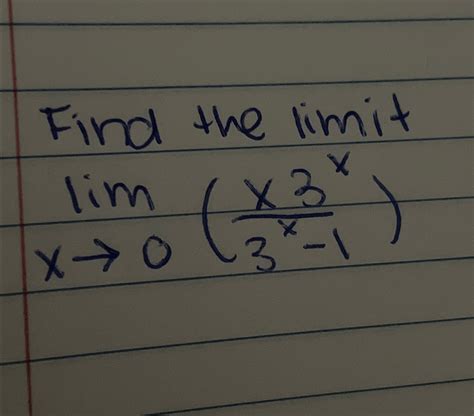 Find the limit
lim x→0 (x3^x / 3^x-1)